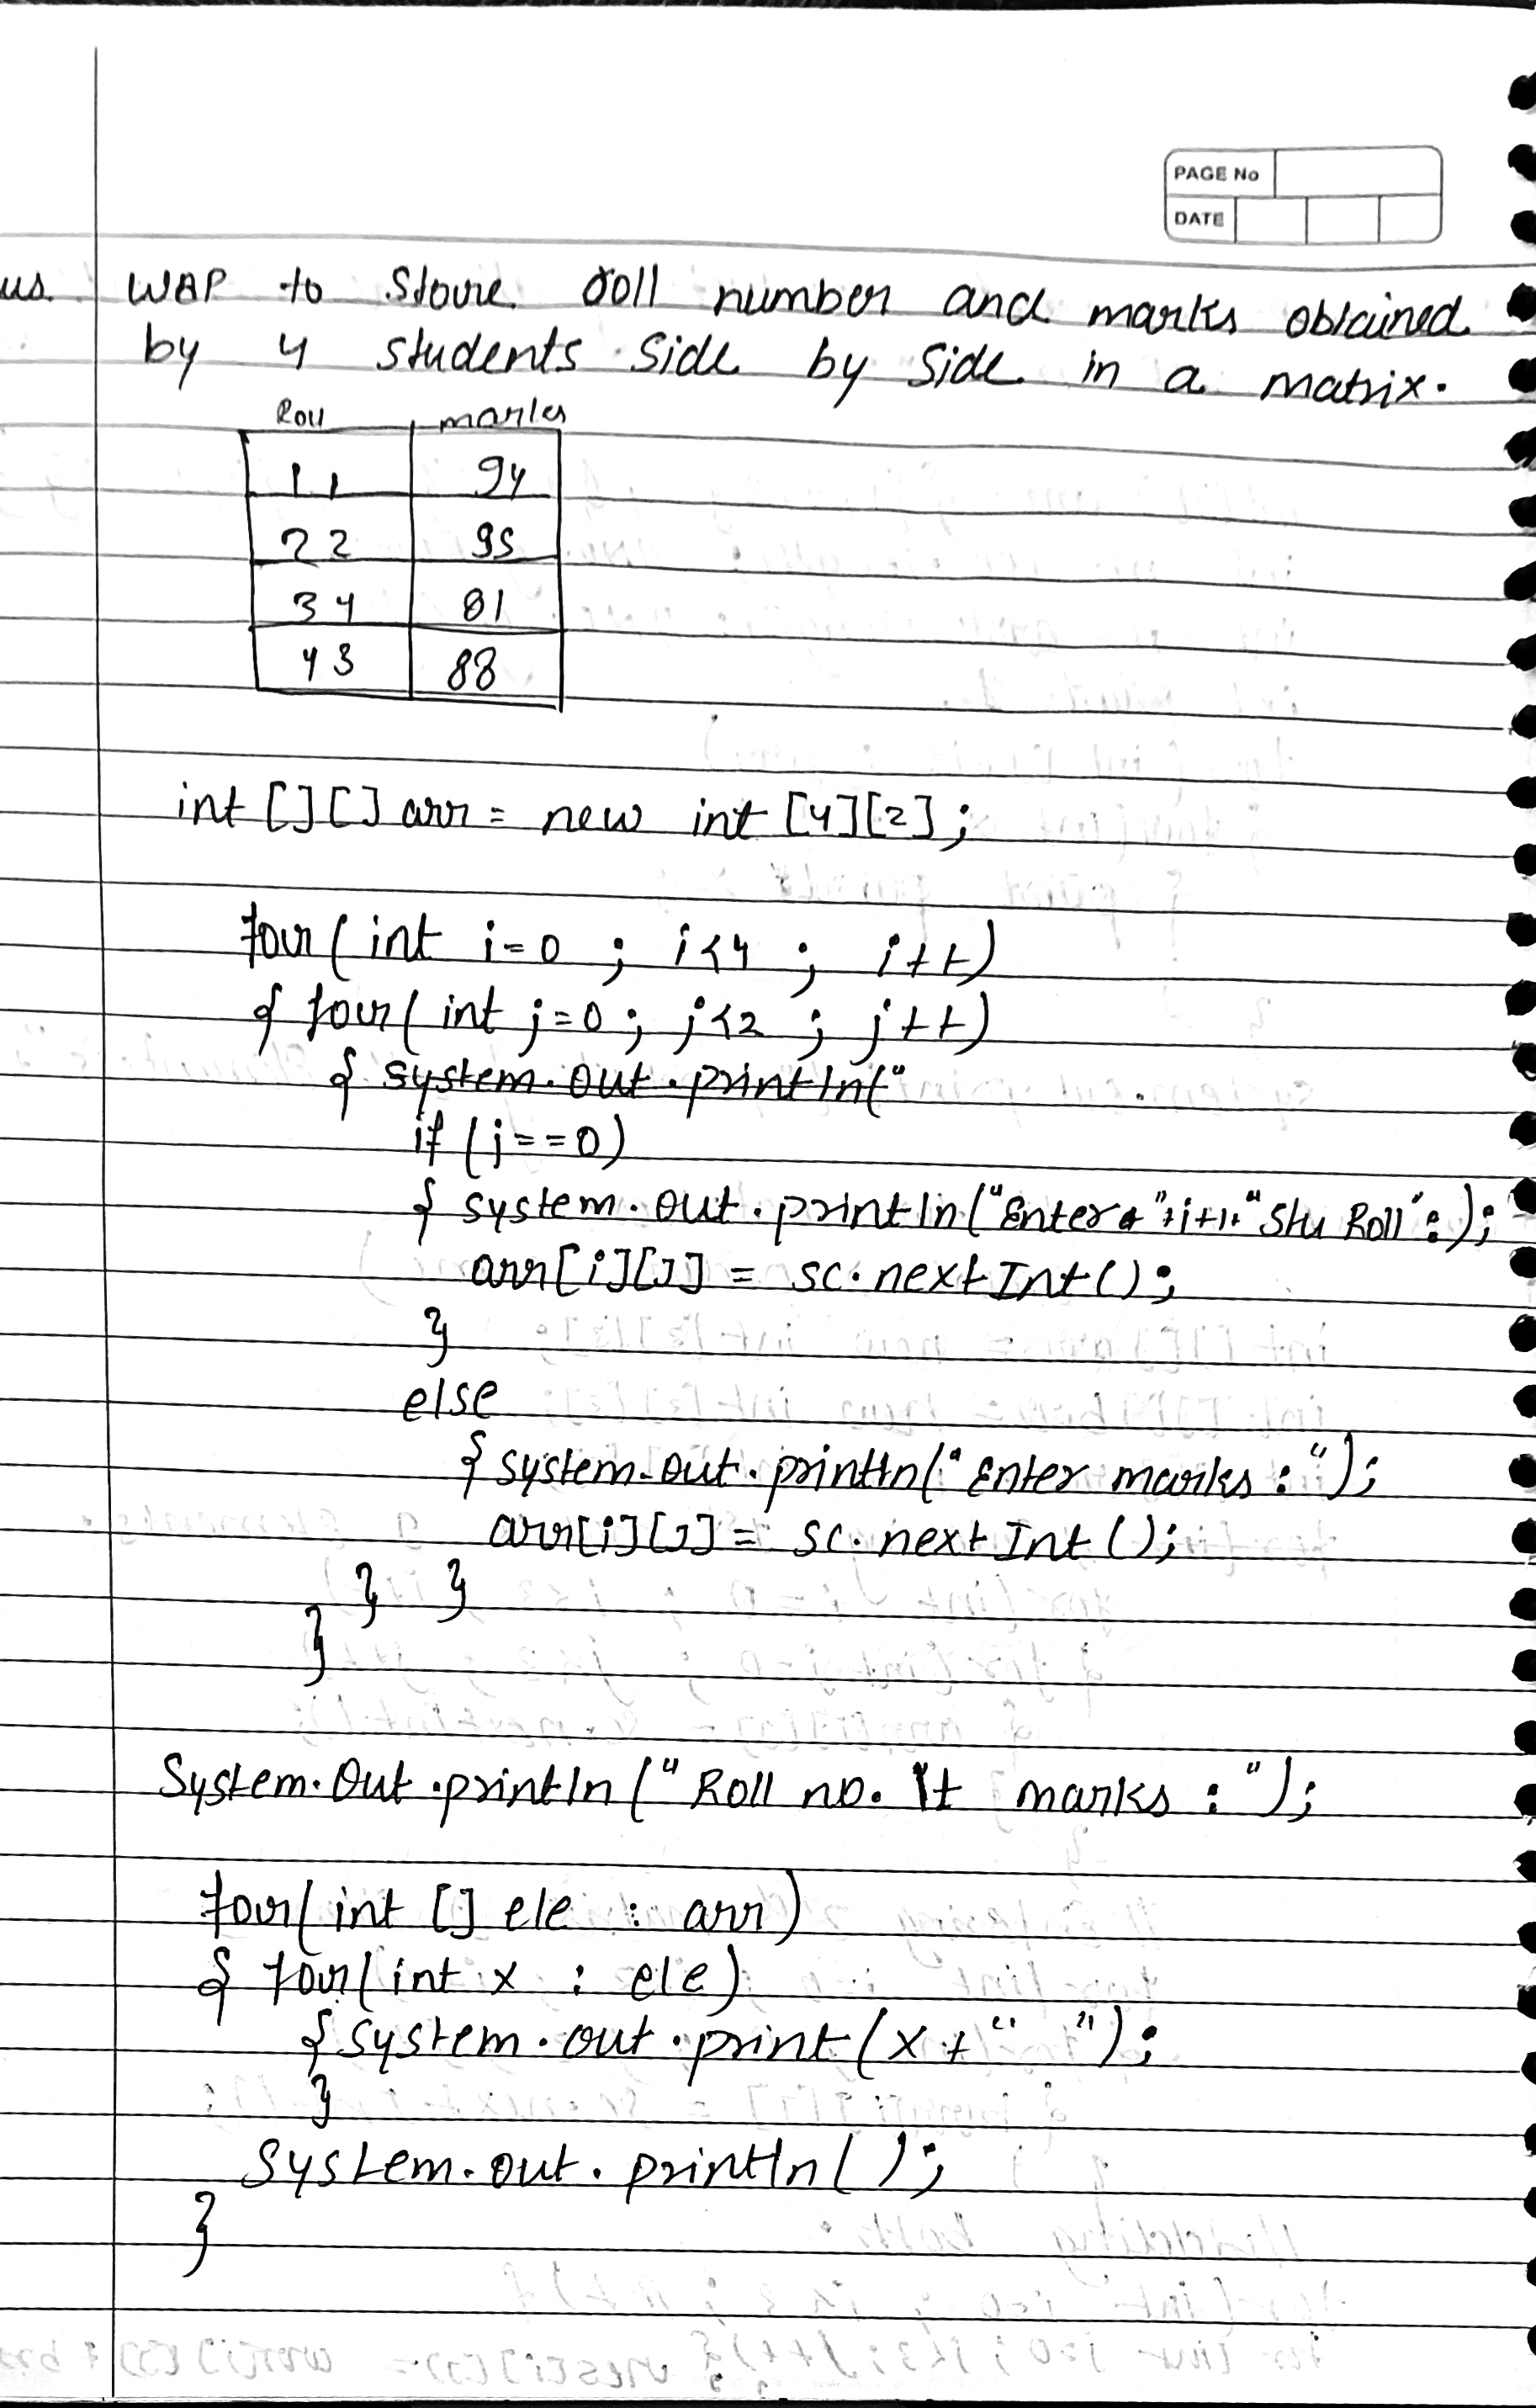 PAGE No
DATE
us. WAP to Store roll number and marks obtained
by 4 students Side by Side in a matrix.
Roll marks
11 94
22 95
34 81
43 88
int [][] arr = new int [4][2];
for( int i=0 ; i<4 ; i++)
{ for( int j=0 ; j<2 ; j++)
{ system.out.println("
if (j==0)
{ system.out.println("Enter "+i+1+"Stu Roll":);
arr[i][j] = sc.nextInt();
}
else
{ system.out.println("Enter marks :");
arr[i][j] = sc.nextInt();
} }
}
System.Out.println("Roll no. \t marks :");
for( int [] ele : arr)
{ for( int x : ele)
{ system.out.print(x+" ");
}
System.out.println();
}